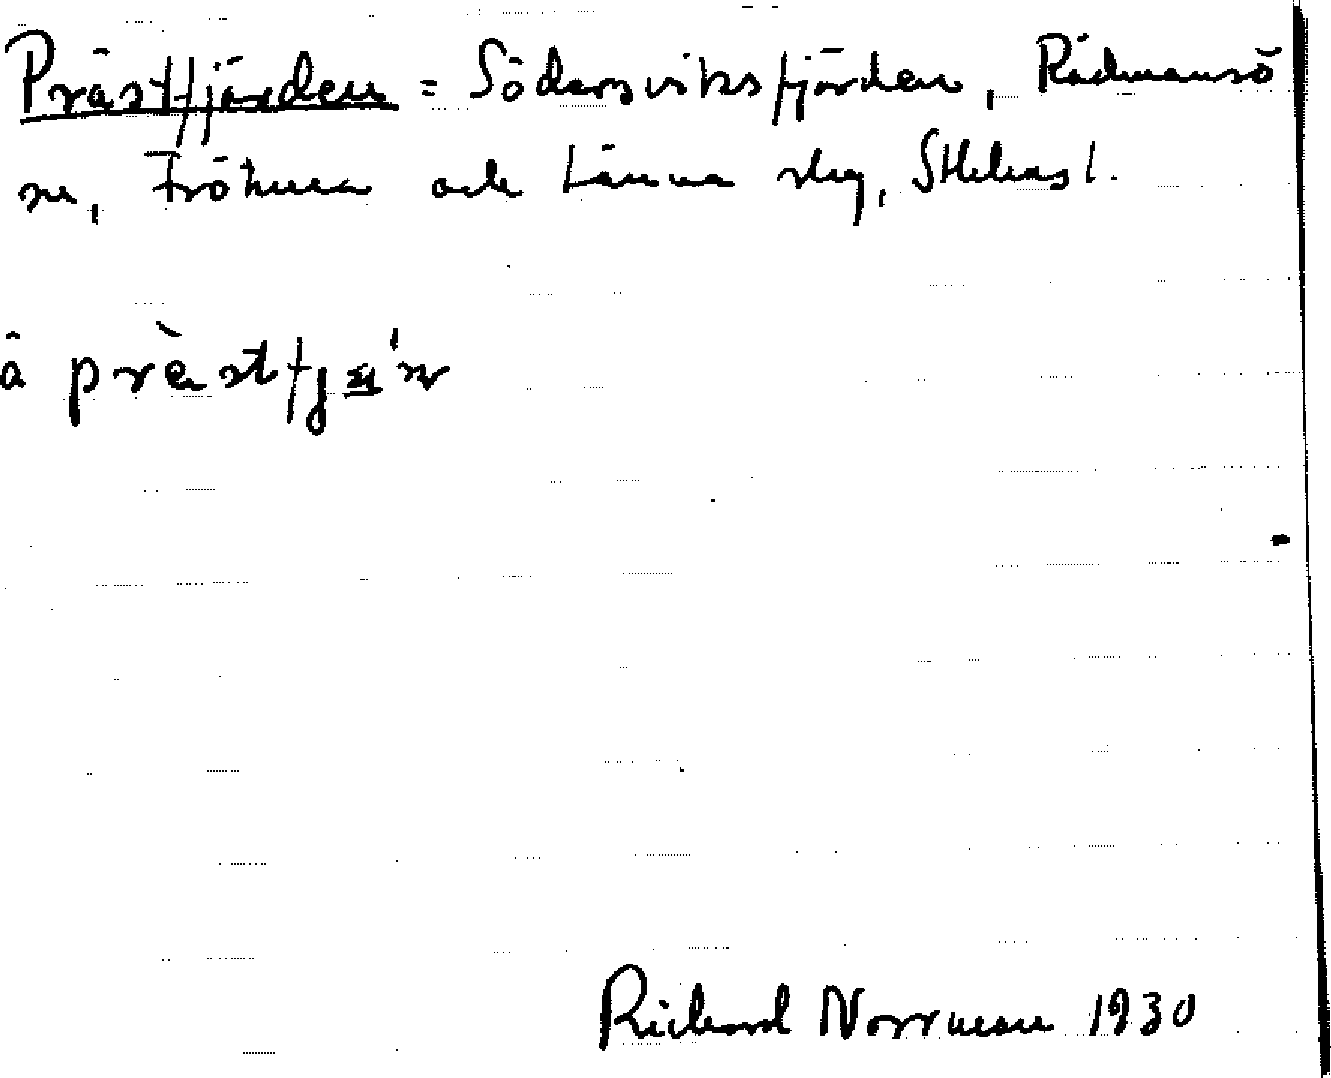 Prästfjärden = Södersviksfjärden, Rådmansö
sn, Frötuna och Länna skg, Sthlms l.
å prɛ̀stfjæ̣'ṇ
Richard Norrman 1930